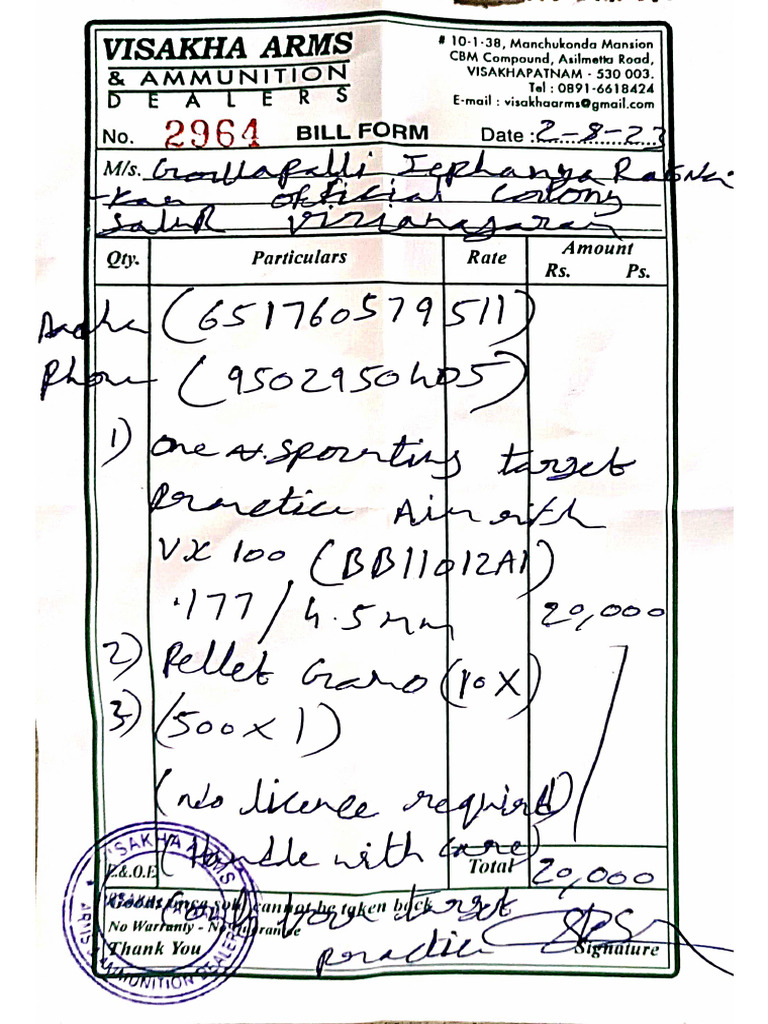 VISAKHA ARMS
& AMMUNITION
DEALERS
# 10-1-38, Manchukonda Mansion
CBM Compound, Asilmetta Road,
VISAKHAPATNAM - 530 003.
Tel : 0891-6618424
E-mail : visakhaarms@gmail.com
No. 2964 BILL FORM Date : 2-8-23
M/s. Gollapalli Jephanya Ratna
-kar official colony
Salur Vizianagaram
Qty. Particulars Rate Amount
Rs. Ps.
(651760579511)
Phone (9502950405)
1) One sporting target
practice Air
VX 100 (BB11012A1)
.177/4.5mm 20,000
2) Pellet Gamo (10X)
3) (500X1)
(No licence required)
(Handle with care)
E.&.O.E Total 20,000
Goods once sold cannot be taken back
target
No Warranty - No Guarantee
practice
Thank You
Signature
VISAKHA ARMS
ARMS AMMUNITION DEALERS